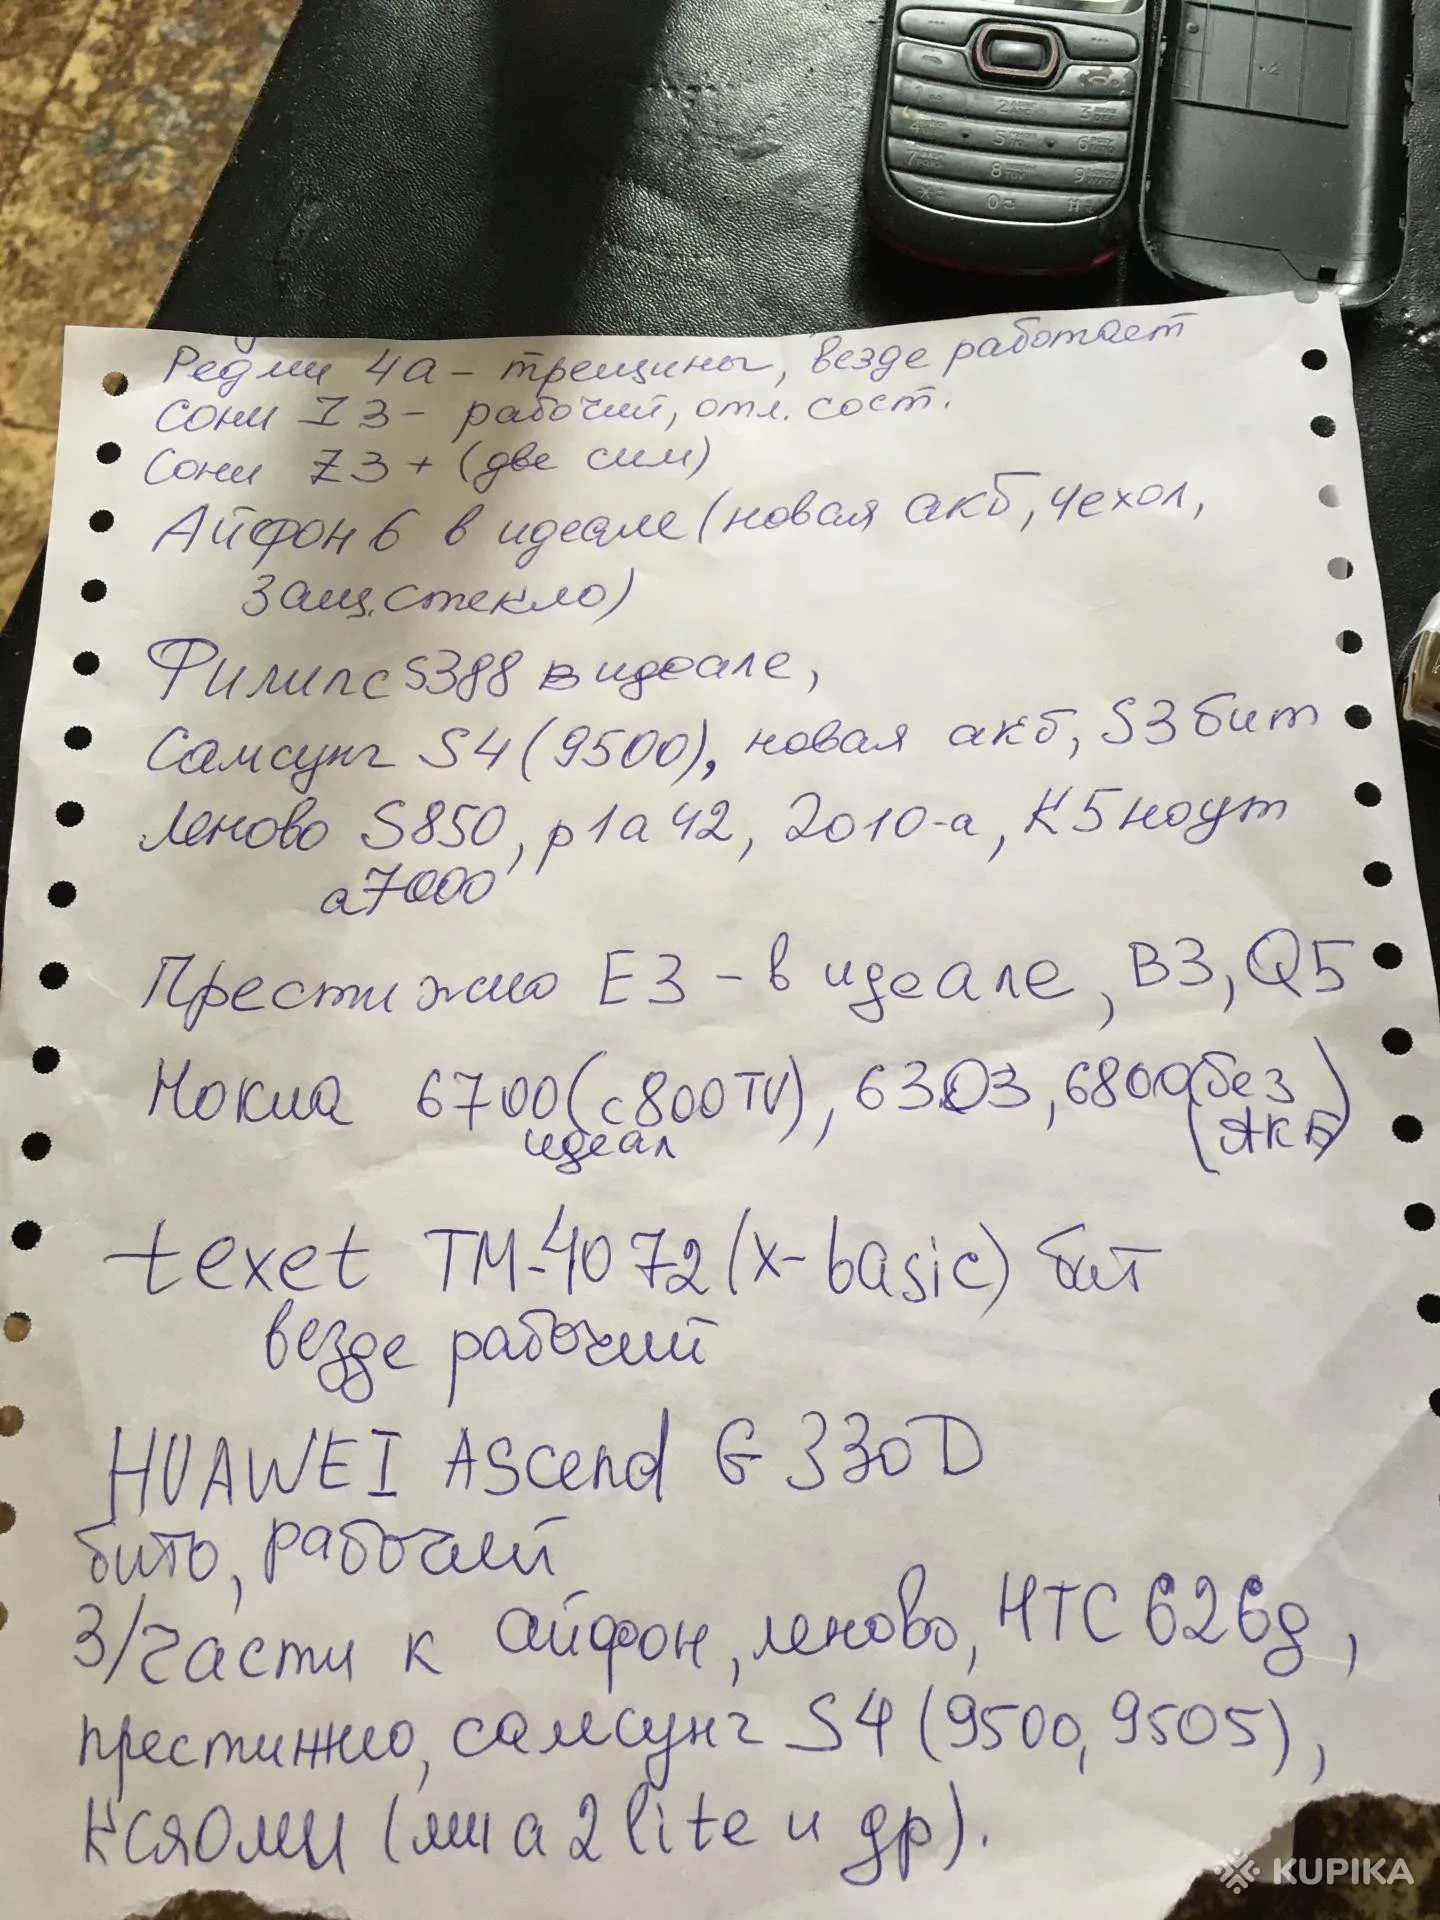 Редми 4а - трещины, везде работает
Сони Z3 - рабочий, отл. сост.
Сони Z3+ (две сим)
Айфон 6 в идеале (новая акб, чехол,
защ. стекло)
Филипс S388 в идеале,
Самсунг S4 (9500), новая акб, S3 бит
Леново S850, р1а42, 2010-а, К5 ноут
а7000
Престижио Е3 - в идеале, В3, Q5
Нокиа 6700 (с800TV), 6303, 6800 (без
идеал АКБ)
texet TM-4072 (x-basic) бит
везде рабочий
HUAWEI Ascend G330D
бито, рабочий
З/части к айфон, леново, HTC 626g,
престижио, самсунг S4 (9500, 9505),
Ксяоми (ми а2 lite и др).
KUPIKA